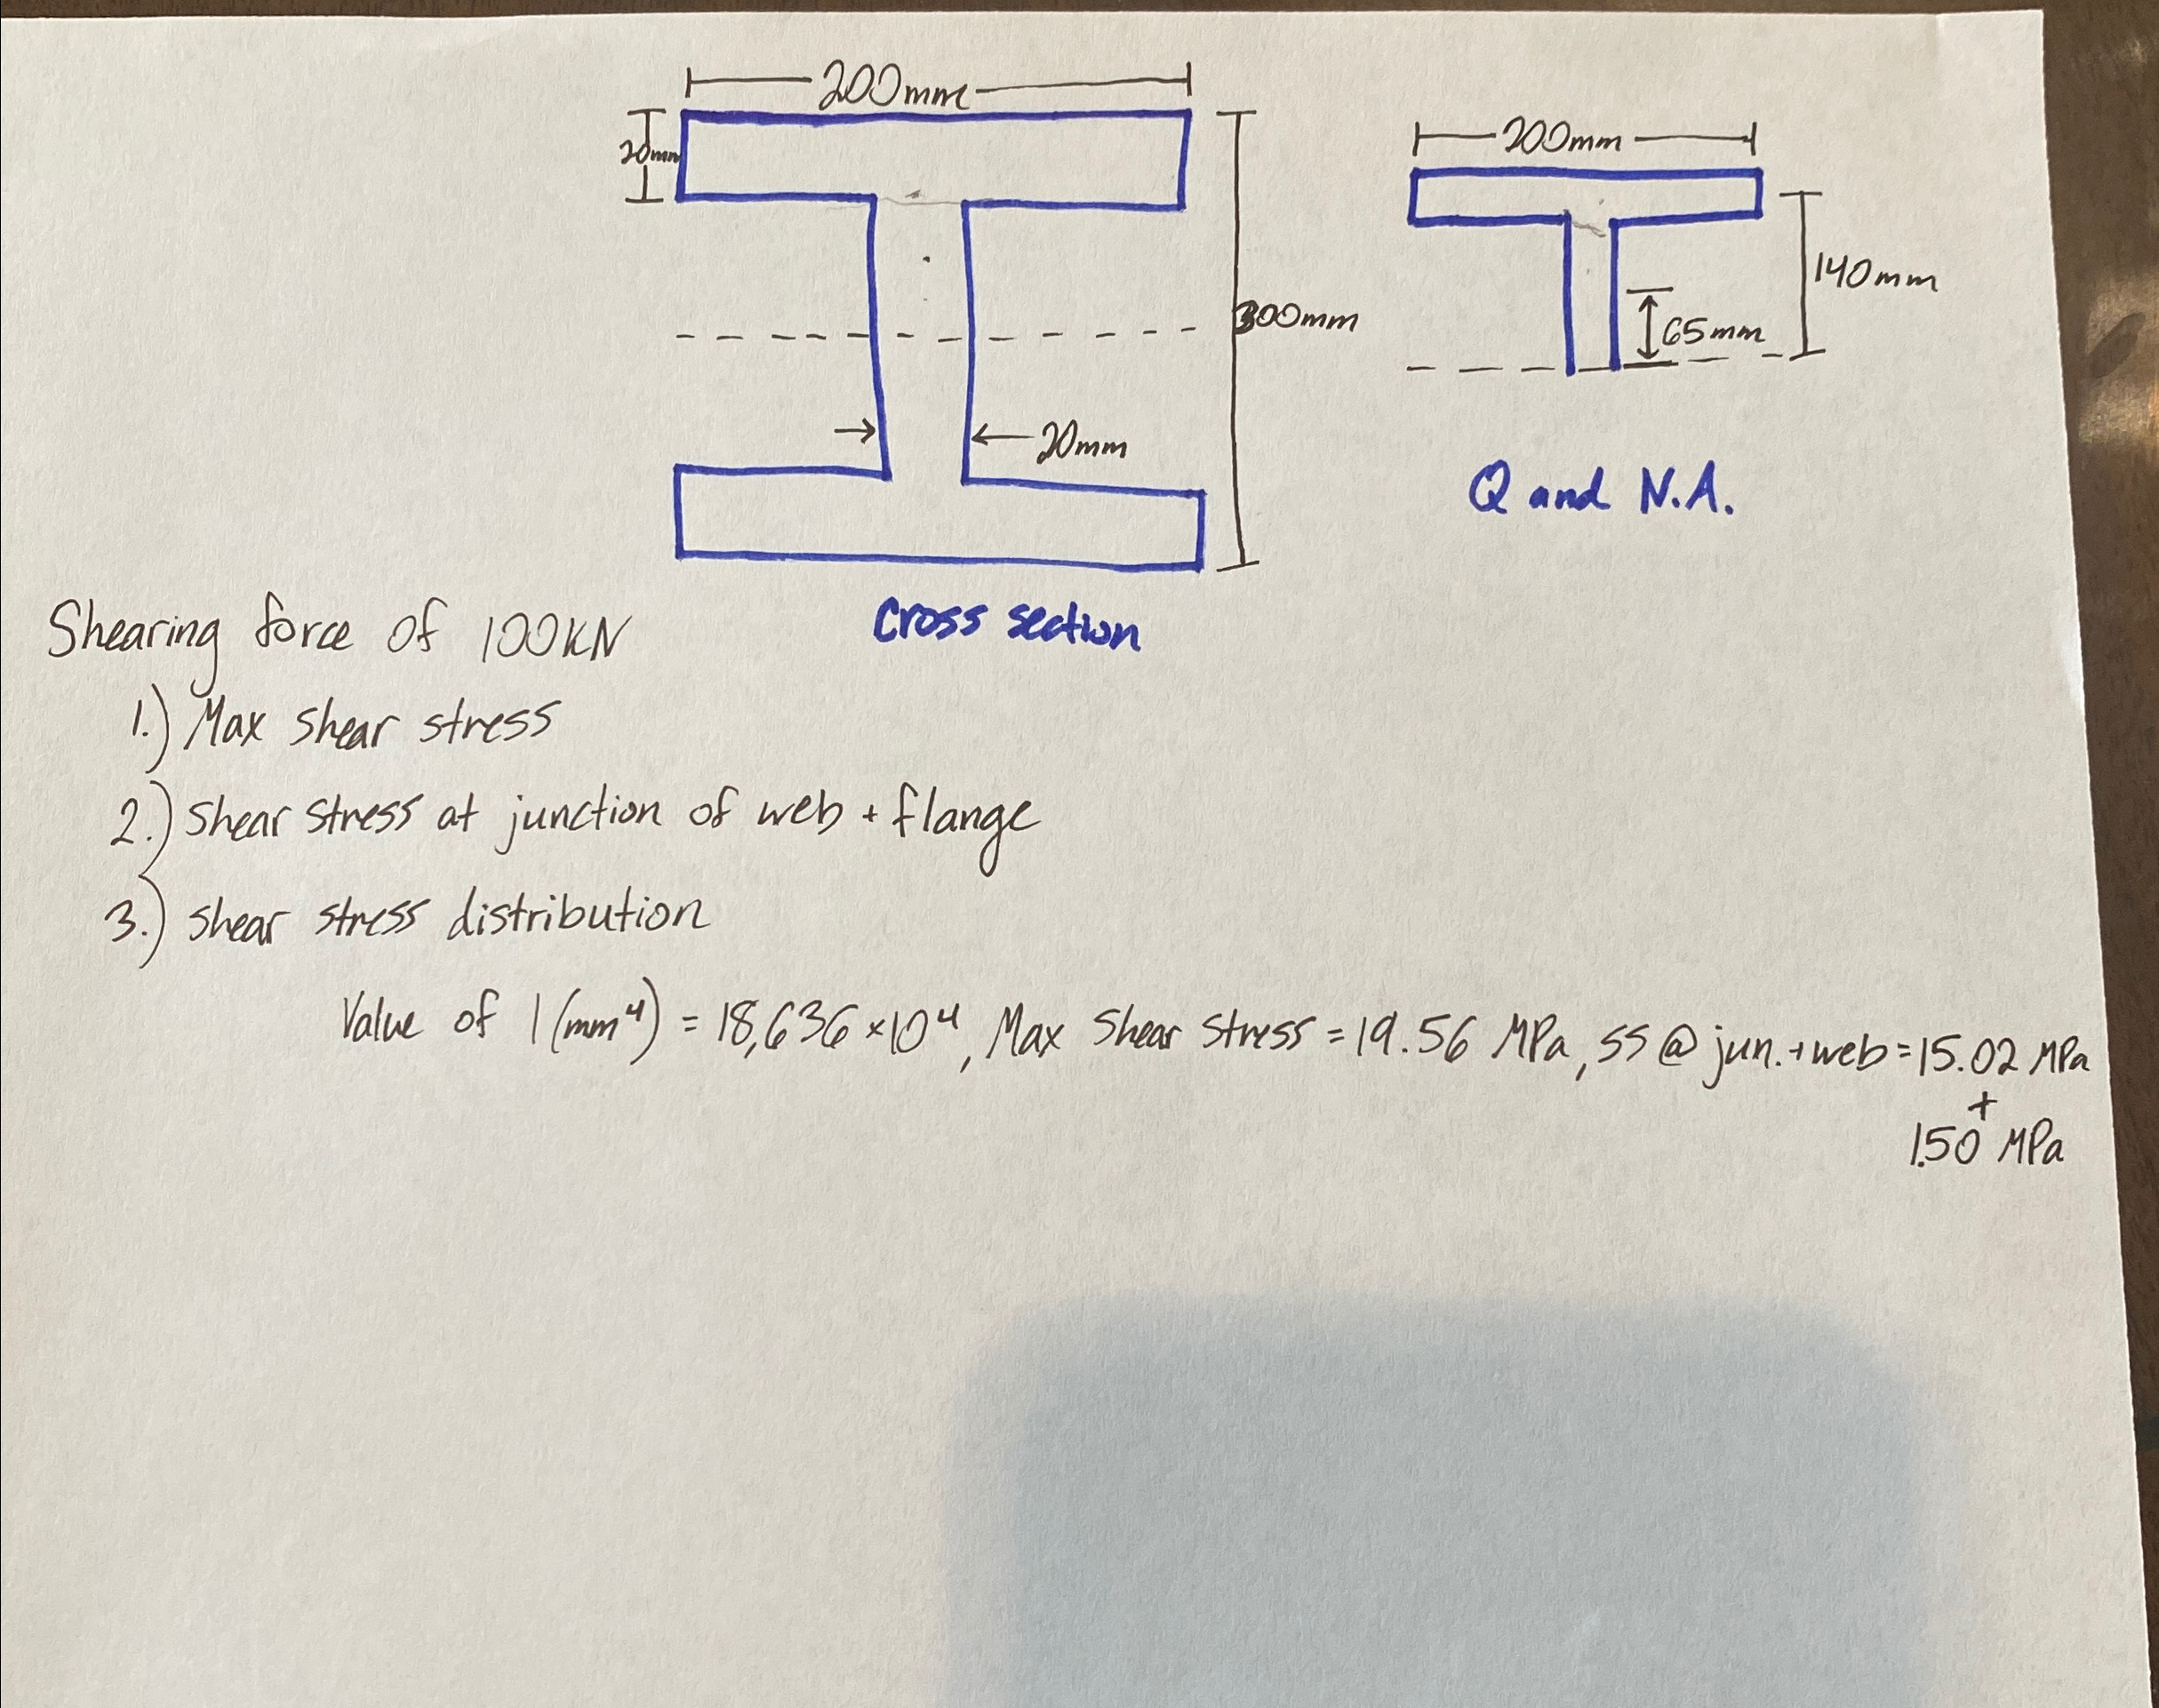 200mm
20mm
300mm
20mm
Cross section
200mm
140mm
65mm
Q and N.A.
Shearing force of 100KN
1.) Max shear stress
2.) Shear stress at junction of web + flange
3.) shear stress distribution
Value of I (mm⁴) = 18,636 × 10⁴, Max Shear Stress = 19.56 MPa, ss @ jun. + web = 15.02 MPa
+
1.50 MPa